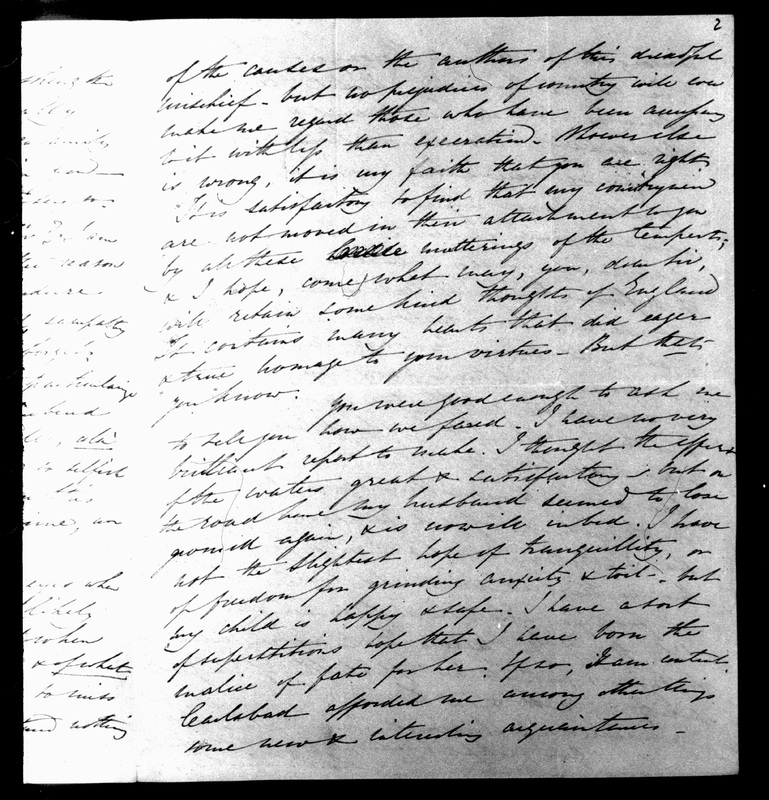 2
of the causes or the authors of this dreadful
mischief - but no prejudices of country will ever
make me regard those who have been accessory
to it with less than execration - Whoever else
is wrong, it is my faith that you are right
It is satisfactory to find that my countrymen
are not moved in their attachment to you
by all these mutterings of the tempests;
& I hope, come what may, you, dear Sir,
will retain some kind thoughts of England
It contains many hearts that did eager
& true homage to your virtues - But that
you know. You were good enough to ask me
to tell you how we fared. I have no very
brilliant report to make. I thought the effect
of the waters great & satisfactory - but on
the road home my husband seemed to lose
ground again, & is now ill in bed. I have
not the slightest hope of tranquillity, or
of freedom from grinding anxiety & toil - but
my child is happy & safe. I have a sort
of superstitious hope that I have born the
malice of fate for her. If so, I am content.
Carlsbad afforded me among other things
some new & interesting acquaintances -
the
I am
reason
sympathy
husband
an
when
& of what
to
nothing